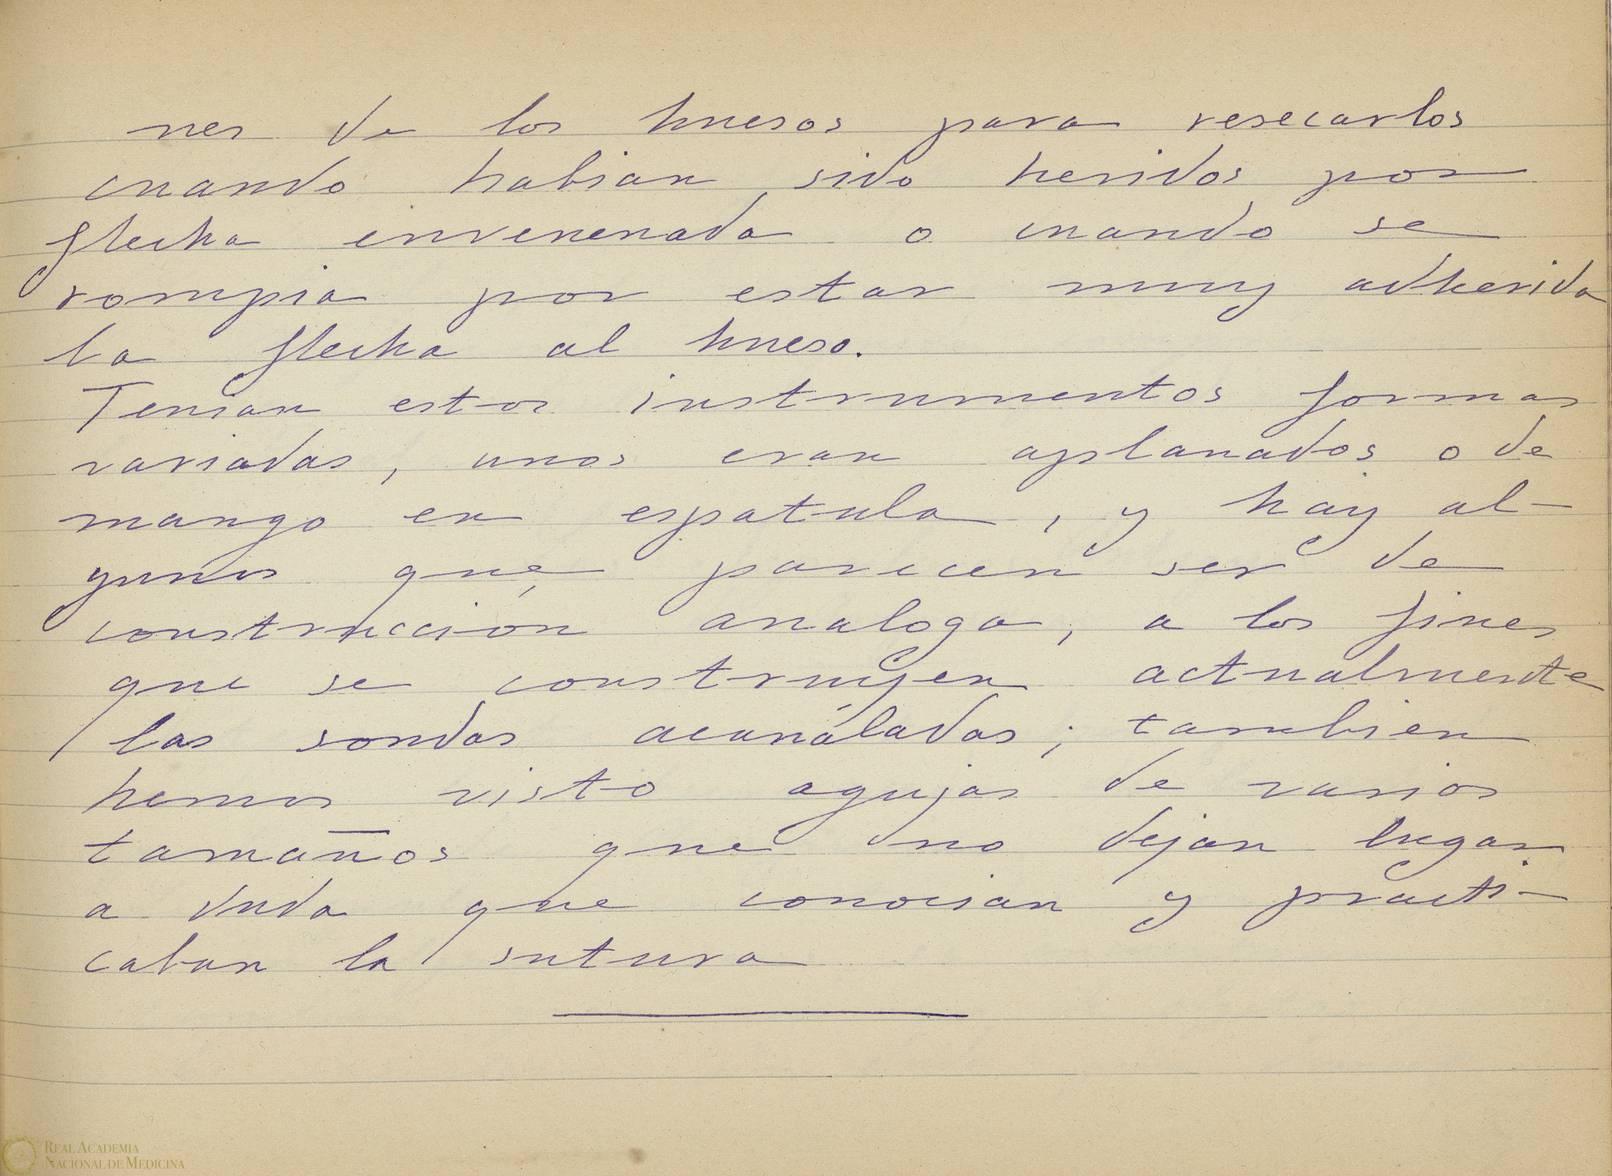 nes de los huesos para resecarlos
cuando habian sido heridos por
flecha envenenada o cuando se
rompia por estar muy adherida
la flecha al hueso.
Tenian estos instrumentos formas
variadas, unos eran aplanados o de
mango en espatula, y hay al-
gunos que parecen ser de
construcción analoga, a los fines
que se construyen actualmente
las sondas acanaladas; tambien
hemos visto agujas de varios
tamaños que no dejan lugar
a duda que conocian y practi-
caban la sutura
REAL ACADEMIA
NACIONAL DE MEDICINA